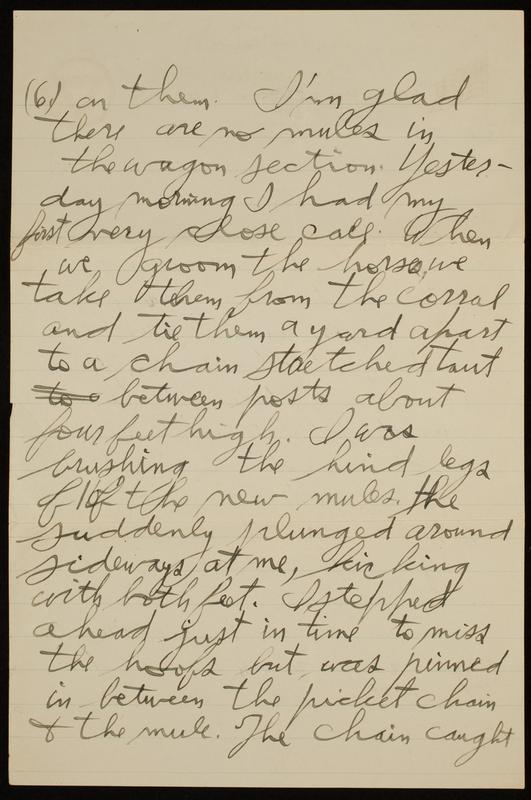 (6) on them. I'm glad
there are no mules in
the wagon section. Yester-
day morning I had my
first very close call. When
we groom the horses, we
take them from the corral
and tie them a yard apart
to a chain stretched taut
between posts about
four feet high. I was
brushing the hind legs
of 1 of the new mules. He
suddenly plunged around
sideways at me, kicking
with both feet. I stepped
ahead just in time to miss
the hoofs but was pinned
in between the picket chain
& the mule. The chain caught